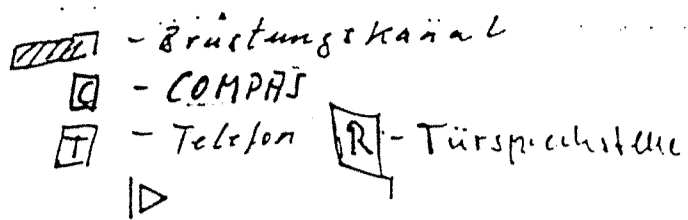 - Brüstungskanal
C - COMPAS
T - Telefon R - Türsprechstelle